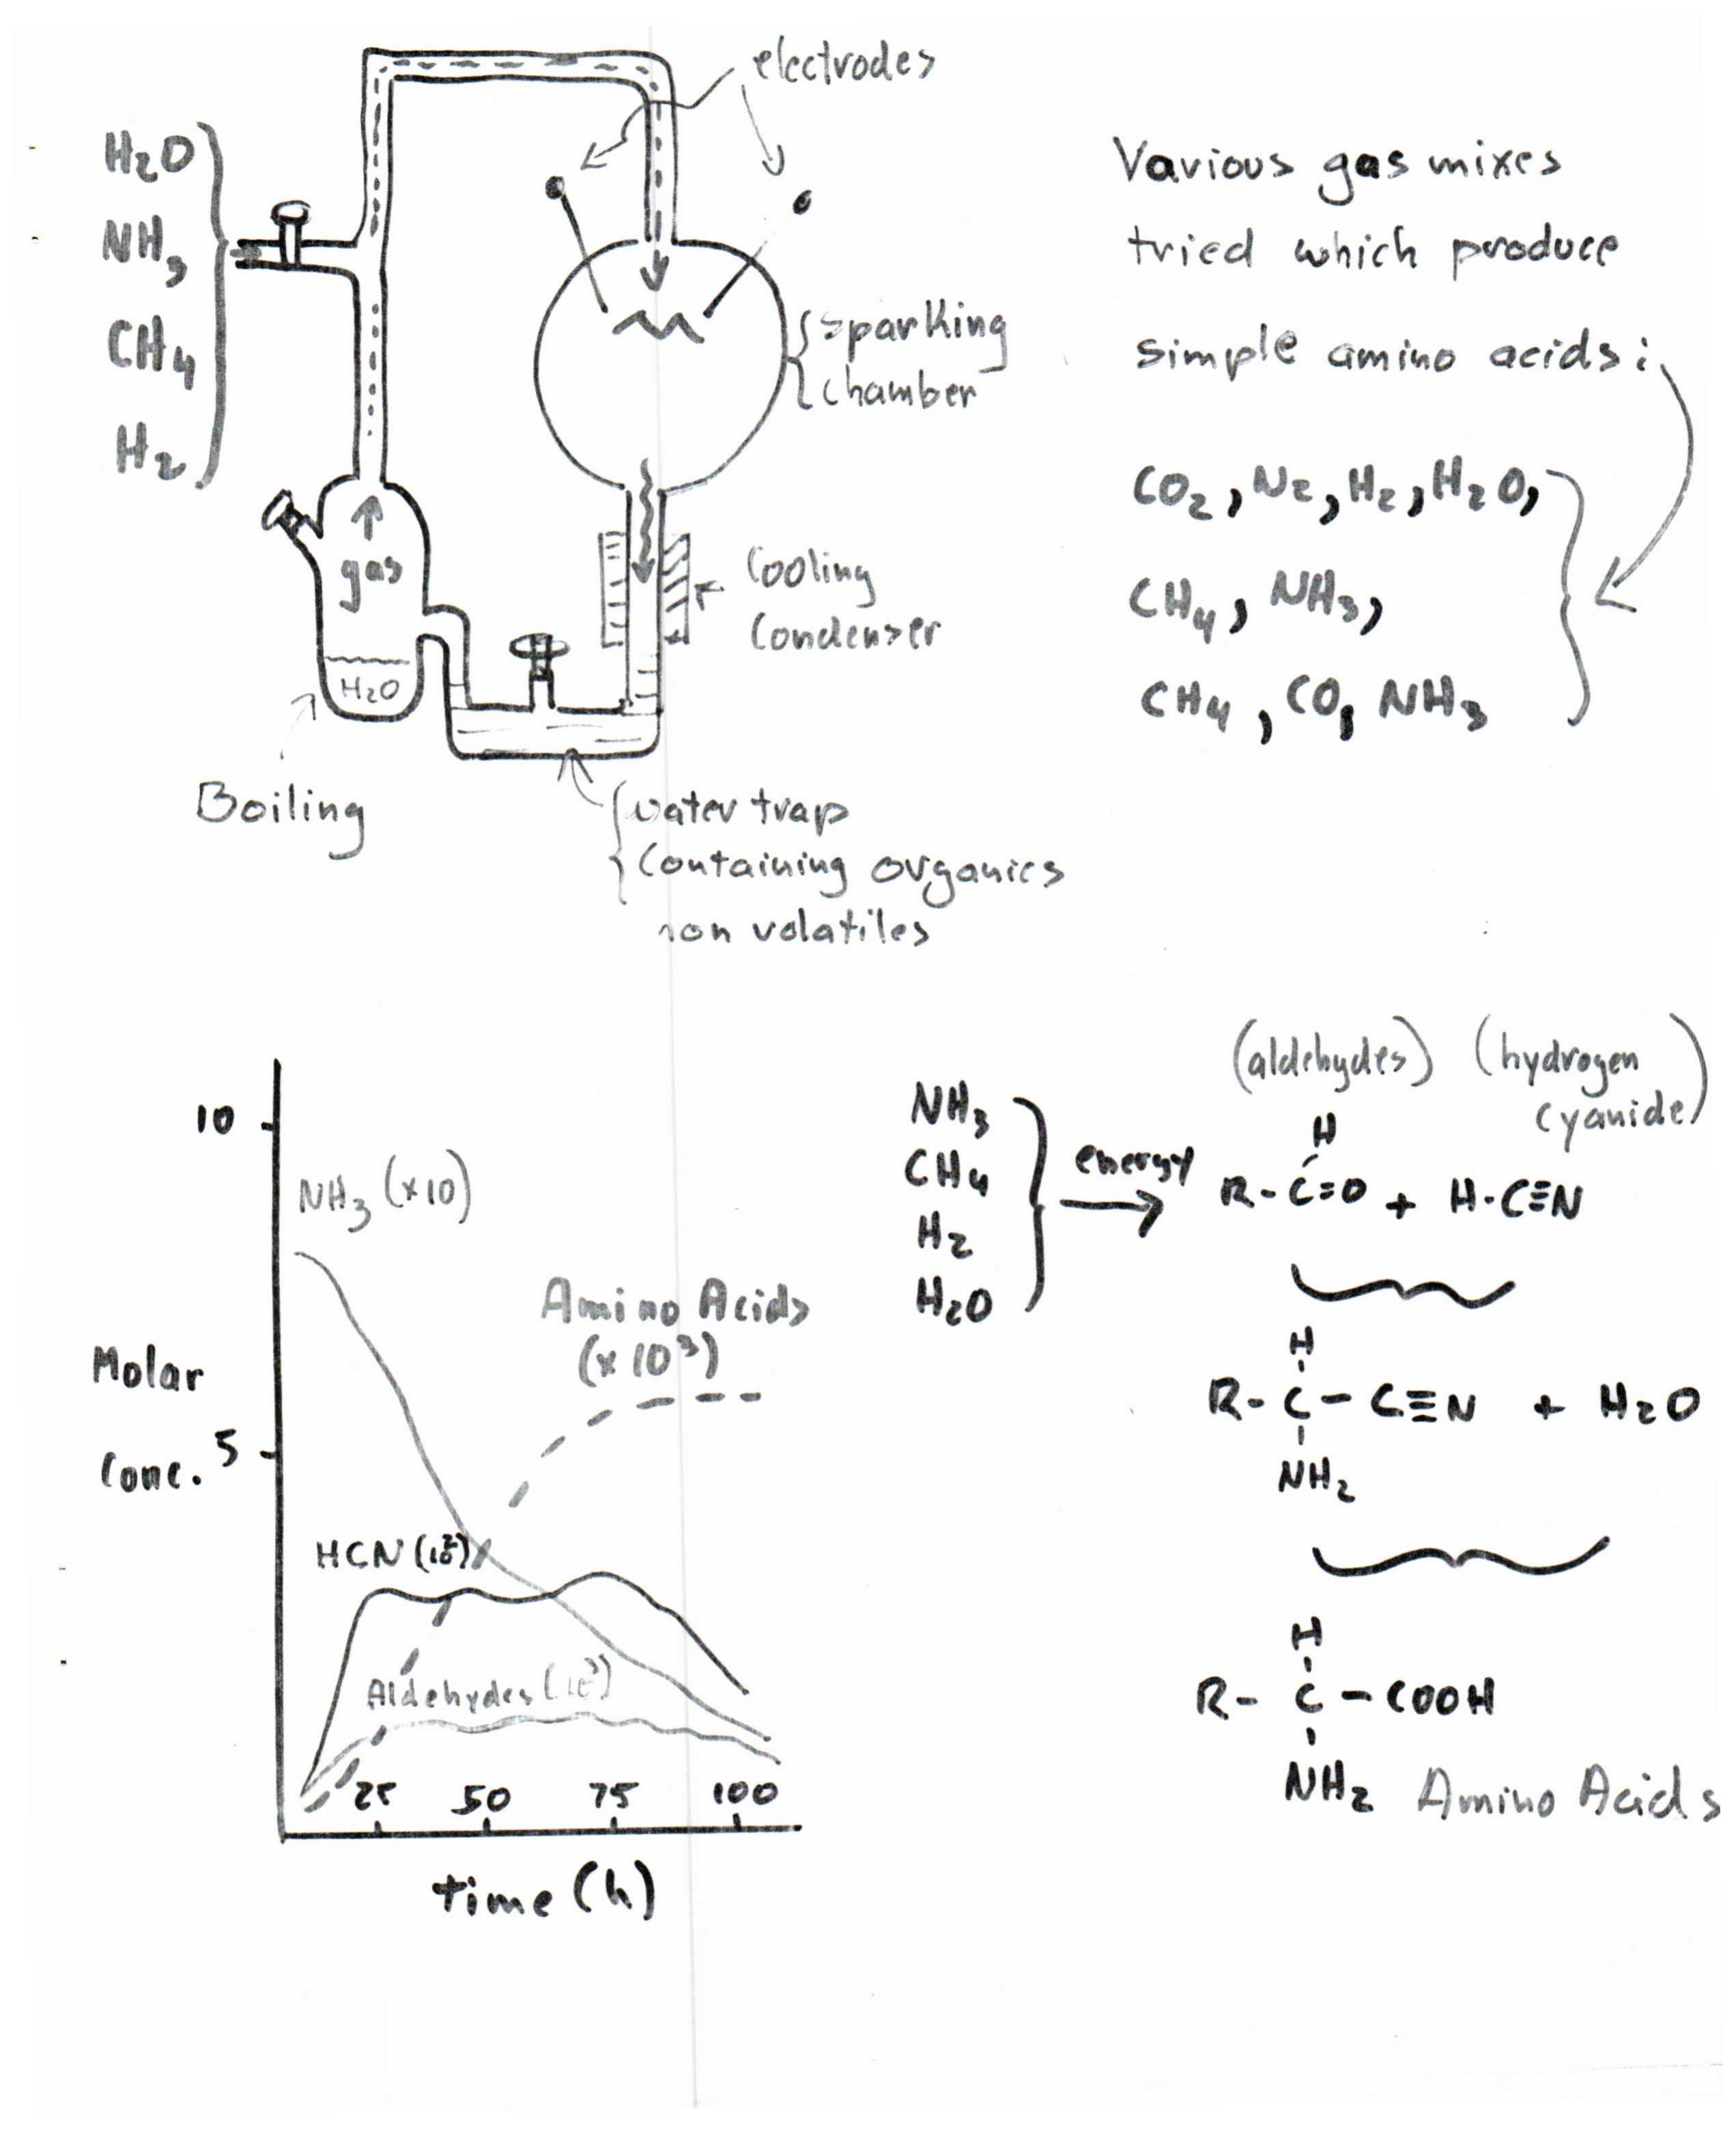 electrodes
H₂O
NH₃
CH₄
H₂
sparking
chamber
gas
H₂O
Cooling
Condenser
Boiling
water trap
Containing organics
non volatiles
Various gas mixes
tried which produce
simple amino acids:
CO₂, N₂, H₂, H₂O,
CH₄, NH₃,
CH₄, CO, NH₃
10
NH₃ (x10)
Amino Acids
(x 10³)
Molar
Conc.
5
Aldehydes
25 50 75 100
time (h)
(aldehydes) (hydrogen
cyanide)
NH₃
CH₄
H₂
H₂O
energy
H
R-C=O + H-C≡N
H
R-C-C≡N + H₂O
NH₂
H
R-C-COOH
NH₂ Amino Acids
HCN